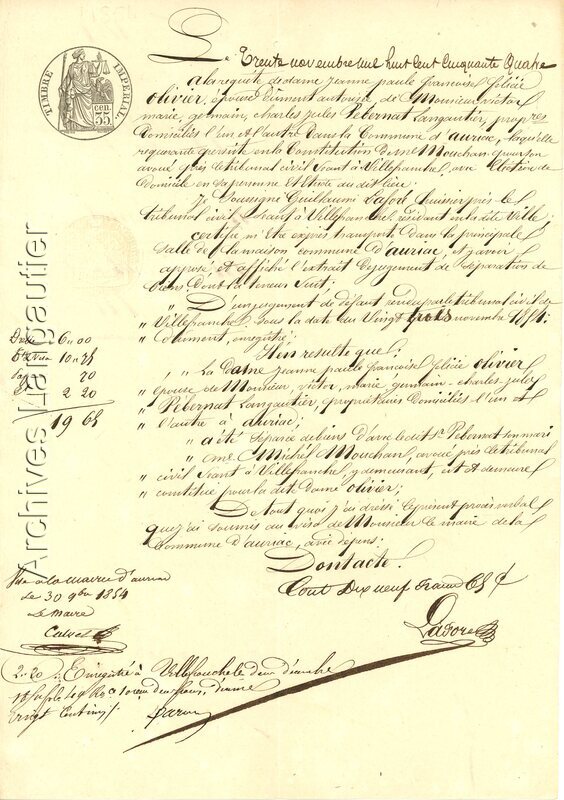 TIMBRE IMPERIAL
35 cen.
Le Trente novembre mil huit cent cinquante Quatre
a la requête de dame Jeanne paule françoise félicie
olivier, épouse dûment autorisée de Monsieur victor
marie, germain, charles jules Pebernat Langautier, propres
Domiciliés l'un et l'autre dans la Commune d'auriac, laquelle
requerante persiste en la Constitution de me Mouchan pour son
avoué près le tribunal civil Séant à Villefranche, avec élection de
domicile en sa personne et Etude du dit lieu;
Je Soussigné Guillaume Lafore huissier près le
tribunal civil Séant à Villefranche, résidant en la dite Ville,
certifie m'être exprès transporté dans la principale
Salle de la maison commune d'auriac, et y avoir
apposé, et affiché l'extrait du jugement de Séparation de
biens dont la teneur Suit;
" D'un jugement de défaut rendu par le tribunal civil de
" Villefranche, sous la date du Vingt trois novembre 1854;
" dûment, enregistré;
" Il en résulte que;
" " La Dame Jeanne paule françoise félicie olivier
" épouse de Monsieur, victor, marie, germain, charles jules
" Pebernat Langautier, propriétaires Domiciliés l'un et
" l'autre à auriac;
" a été Séparée de biens d'avec le dit Sr Pebernat son mari
" me Michel Mouchan, avoué près le tribunal
" civil Séant à Villefranche, y demeurant, est et demeure
" constitué pour la dite Dame olivier;
De tout quoi j'ai dressé le présent procès verbal
que j'ai soumis au visa de Monsieur le maire de la
Commune d'auriac, avec dépens;
Dont acte
Cout Dix neuf Francs 65 c
Lafore
6 " 00
10 " 75
" 70
2 20
19 65
Vu a la mairie d'auriac
le 30 9bre 1854
Le Maire
Calvet
2 - 20 Enregistré à Villefranche le deux décembre
vingt centimes
Archives Langautier